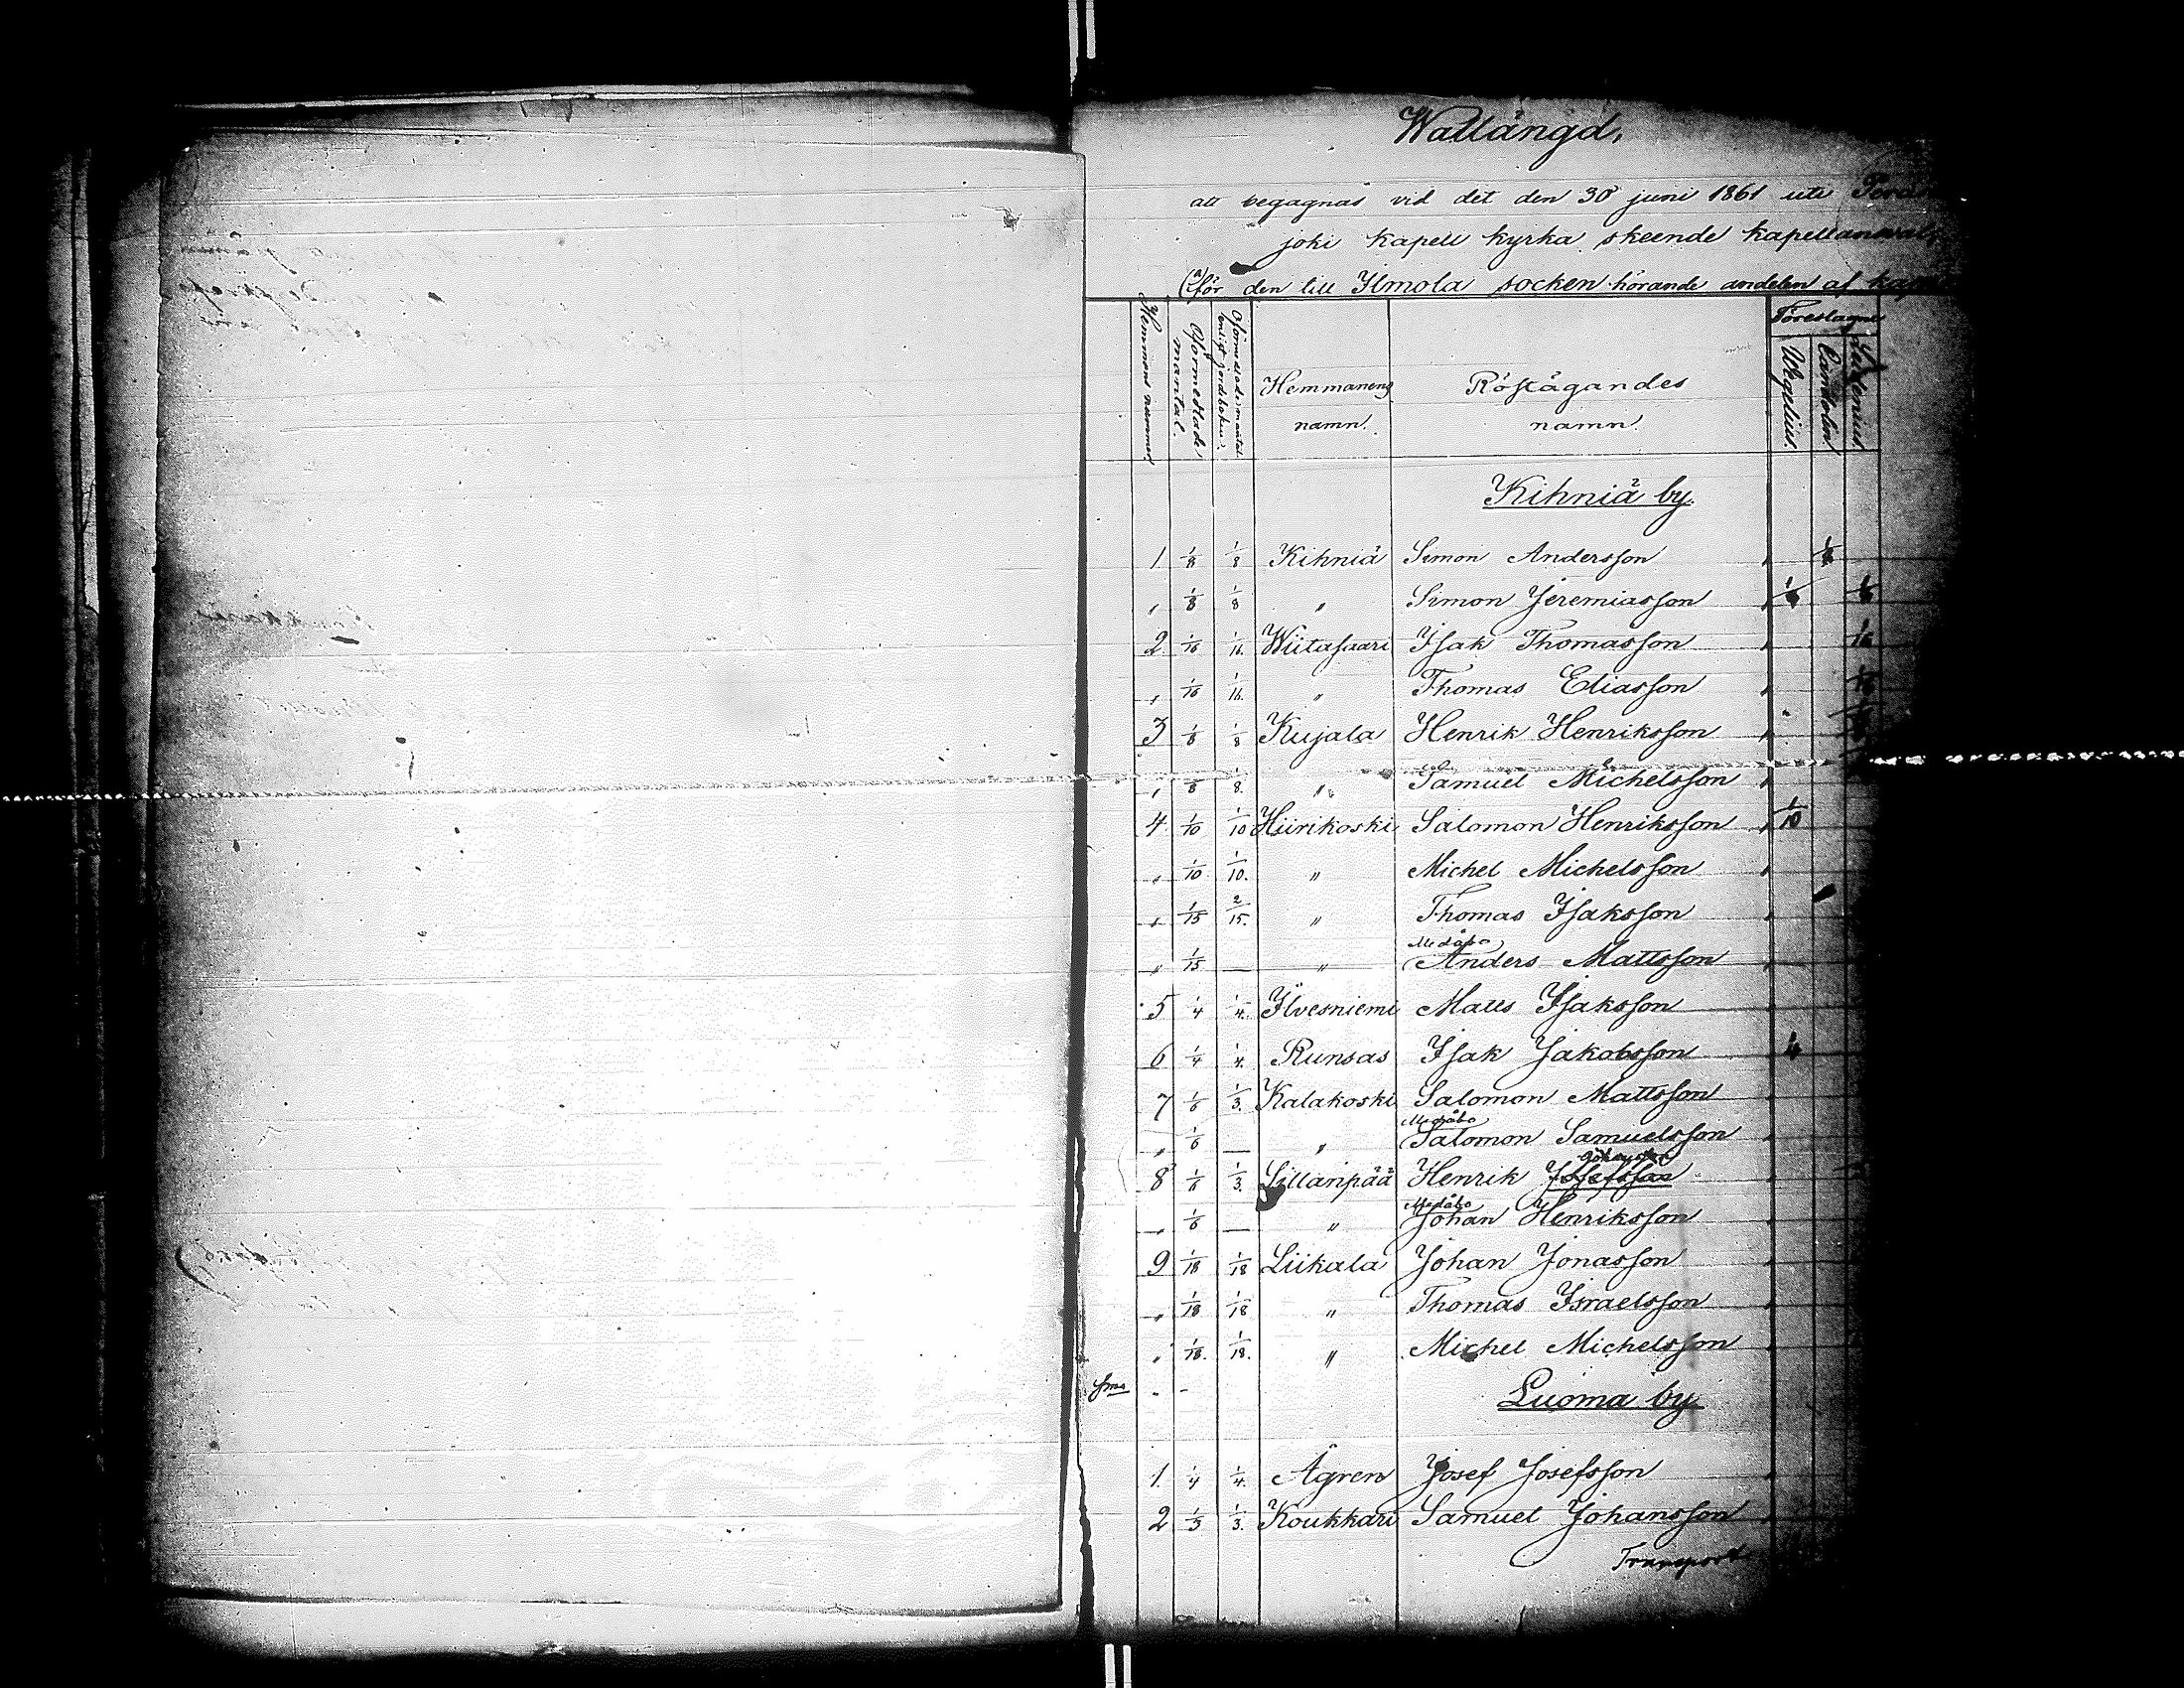 Wallängd,
att begagnas vid det den 30 juni 1861 uti
joki kapell kyrka skeende kapellansval
(a) för den till Ilmola socken hörande andelen af
Hemmans nummer
Oförmedlade mantal.
Oförmedlade mantal enligt jordeboken.
Hemmanens namn.
Röstägandes namn.
Föreslagne
Kihniä by.
1 1/8 1/8 Kihniä Simon Andersson
" 1/8 1/8 " Simon Jeremiasson
2 1/16 1/16. Wiitasaari Isak Thomasson 1/16
" 1/16 1/16. " Thomas Eliasson 1/16
3 1/8 1/8 Kujala Henrik Henriksson
" 1/8 1/8. " Samuel Michelsson
4 1/10 1/10 Hiirikoski Salomon Henriksson 1/10
" 1/10 1/10. " Michel Michelsson
" 1/15 2/15. " Thomas Isaksson
" 1/15 — " Medåbo Anders Mattsson
5 1/4 1/4. Ilvesniemi Matts Isaksson
6 1/4 1/4. Runsas Isak Jakobsson 1/4
7 1/6 1/3. Kalakoski Salomon Mattsson
" 1/6 — " Medåbo Salomon Samuelsson
8 1/6 1/3. Sillanpää Henrik Josefsson
" 1/6 — " Medåbo Johan Henriksson
9 1/18 1/18 Liikala Johan Jonasson
" 1/18 1/18 " Thomas Israelsson
" 1/18. 1/18. " Michel Michelsson
Luoma by.
1. 1/4 1/4. Ågren Josef Josefsson
2 1/3 1/3. Koukkari Samuel Johansson
Transport